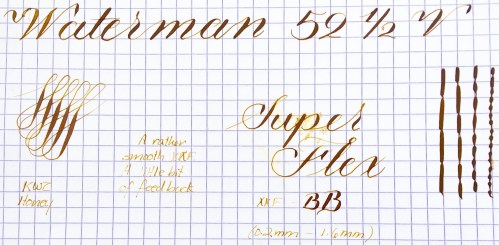 Waterman 52 1/2 V
Super
Flex
A rather
smooth XXF
A little bit
of feedback
KWZ
Honey
XXF - BB
(0.2mm - 1.6mm)